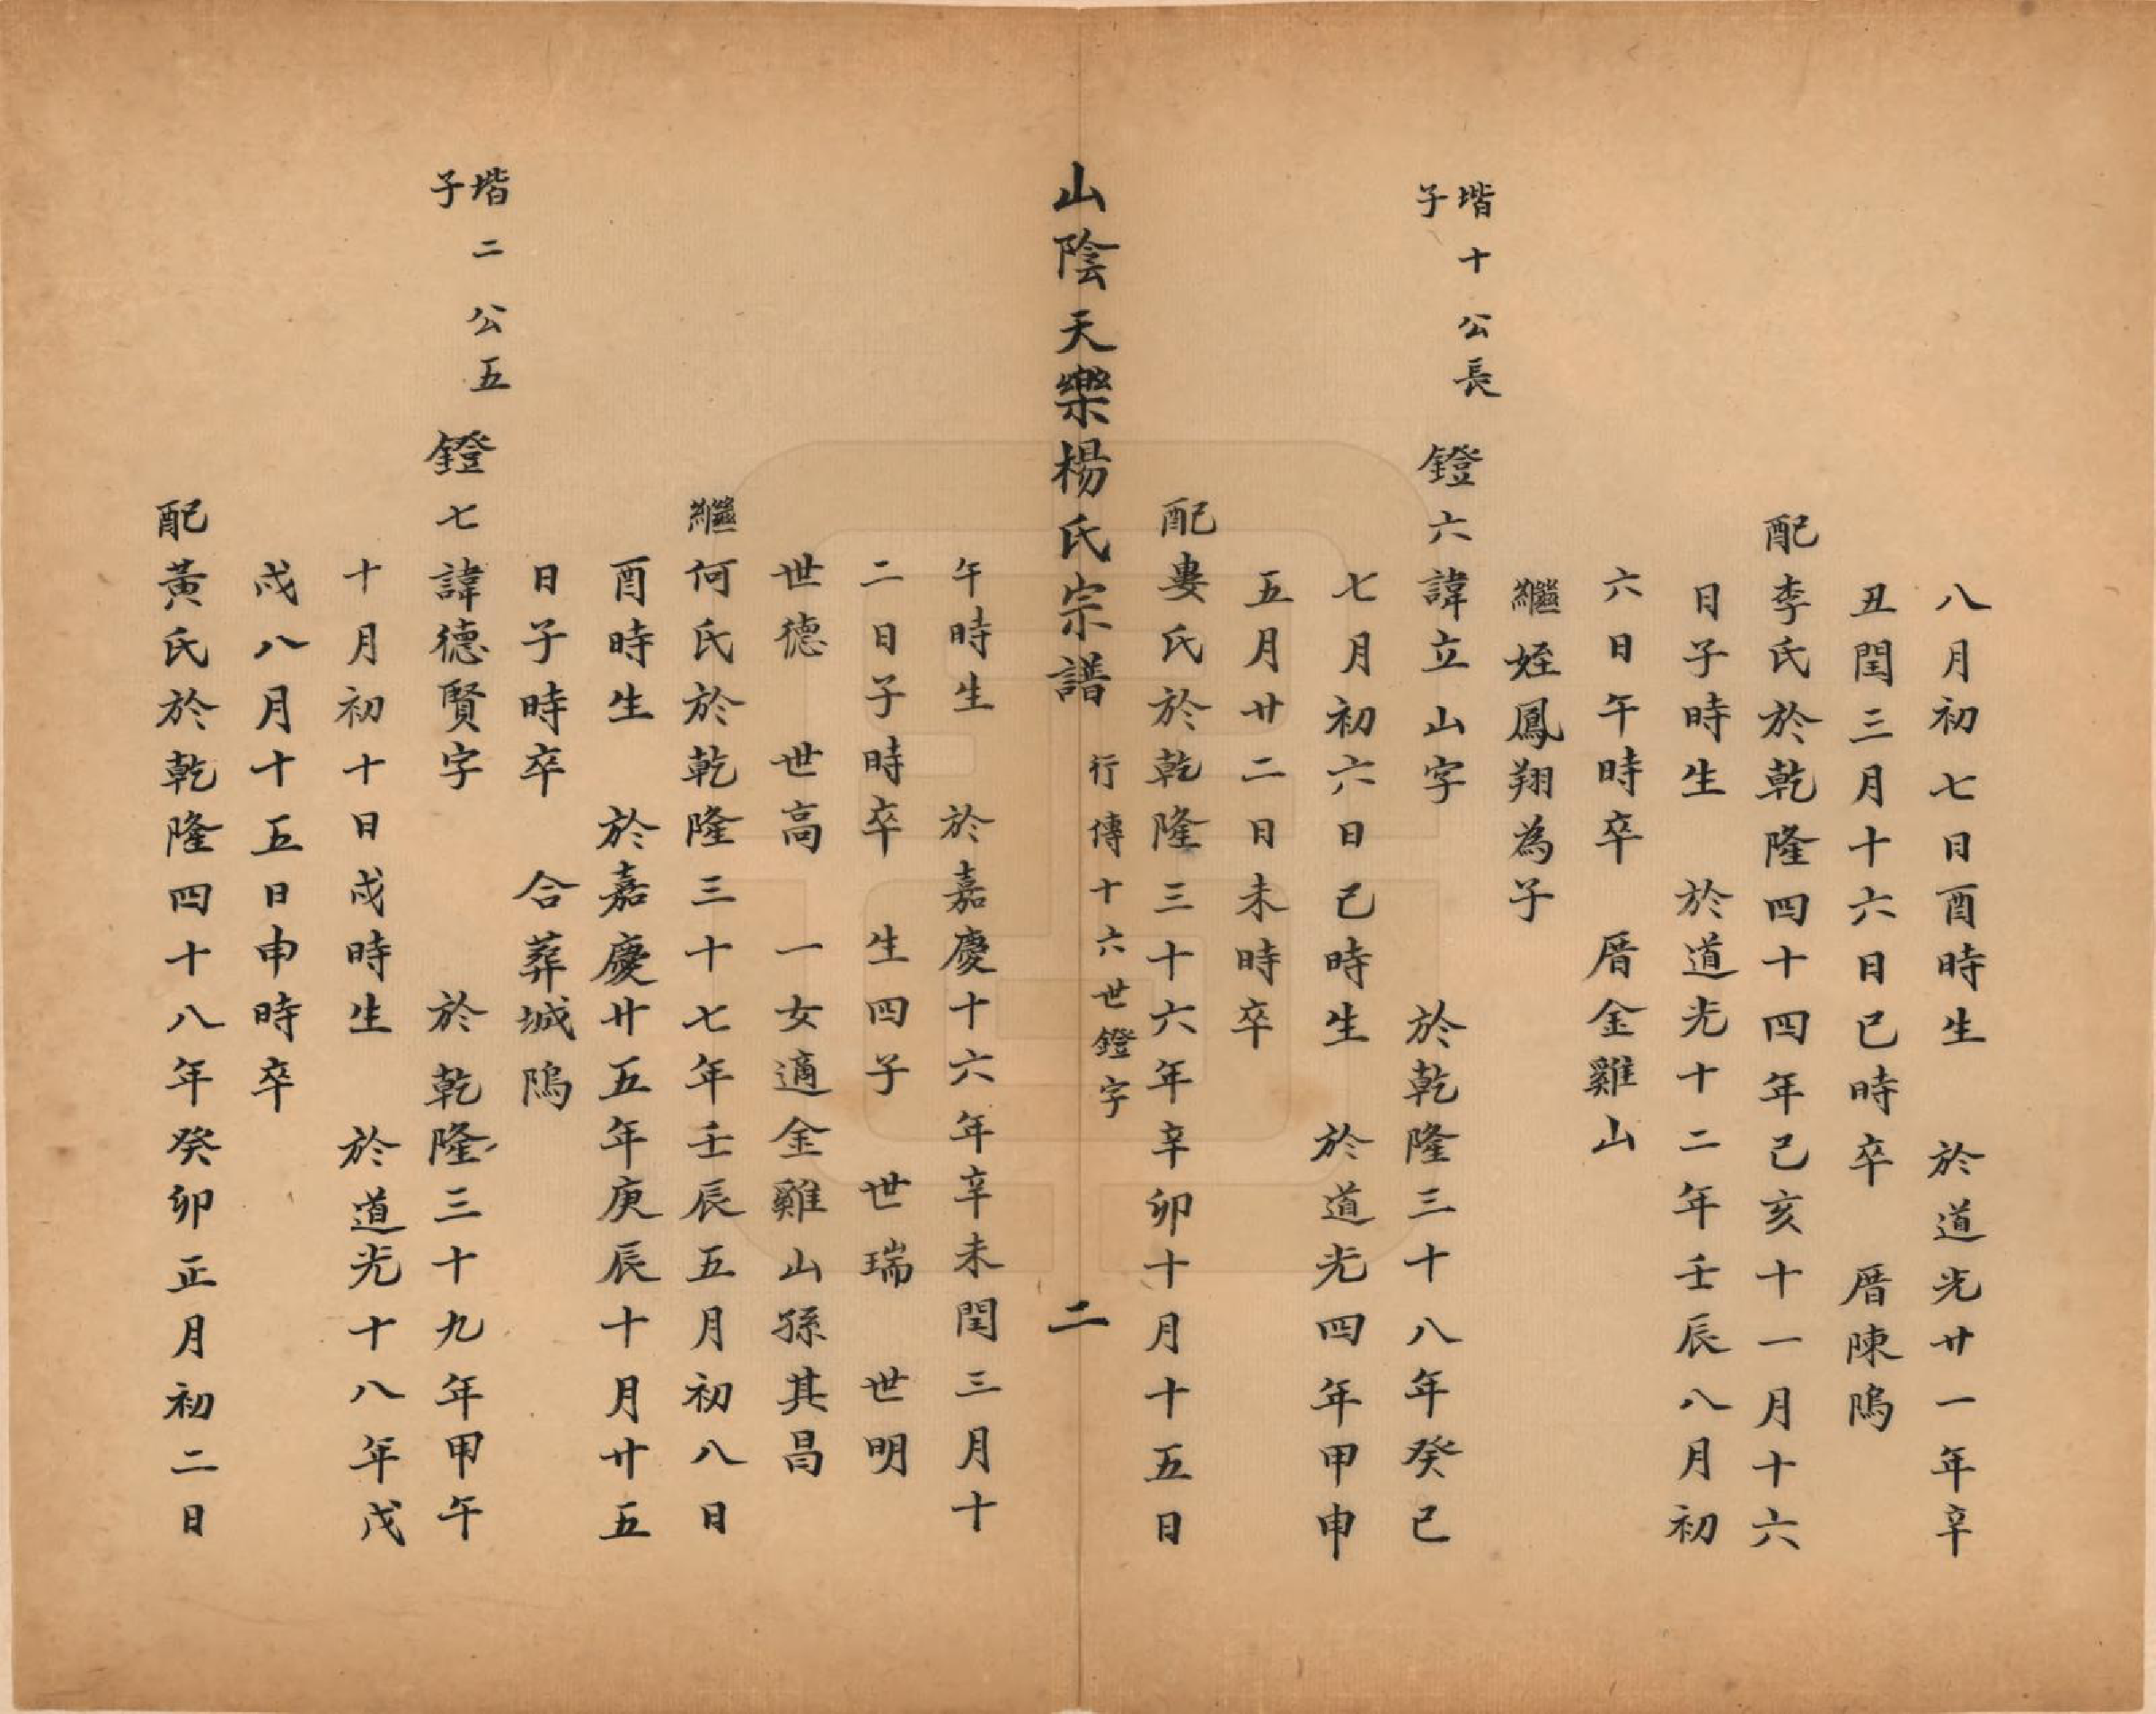 八月初七日酉時生　於道光廿一年辛
丑閏三月十六日巳時卒　厝陳隖
配李氏於乾隆四十四年己亥十一月十六
日子時生　於道光十二年壬辰八月初
六日午時卒　厝金雞山
繼姪鳳翔為子
堦十公長子　鐙六諱立山字　於乾隆三十八年癸巳
七月初六日己時生　於道光四年甲申
五月廿二日未時卒
配婁氏於乾隆三十六年辛卯十月十五日
山陰天樂楊氏宗譜　行傳十六世鐙字　二
午時生　於嘉慶十六年辛未閏三月十
二日子時卒　生四子　世瑞　世明
世德　世高　一女適金雞山孫其昌
繼何氏於乾隆三十七年壬辰五月初八日
酉時生　於嘉慶廿五年庚辰十月廿五
日子時卒　合葬城隖
堦二公五子　鐙七諱德賢字　於乾隆三十九年甲午
十月初十日戍時生　於道光十八年戊
戍八月十五日申時卒
配黃氏於乾隆四十八年癸卯正月初二日